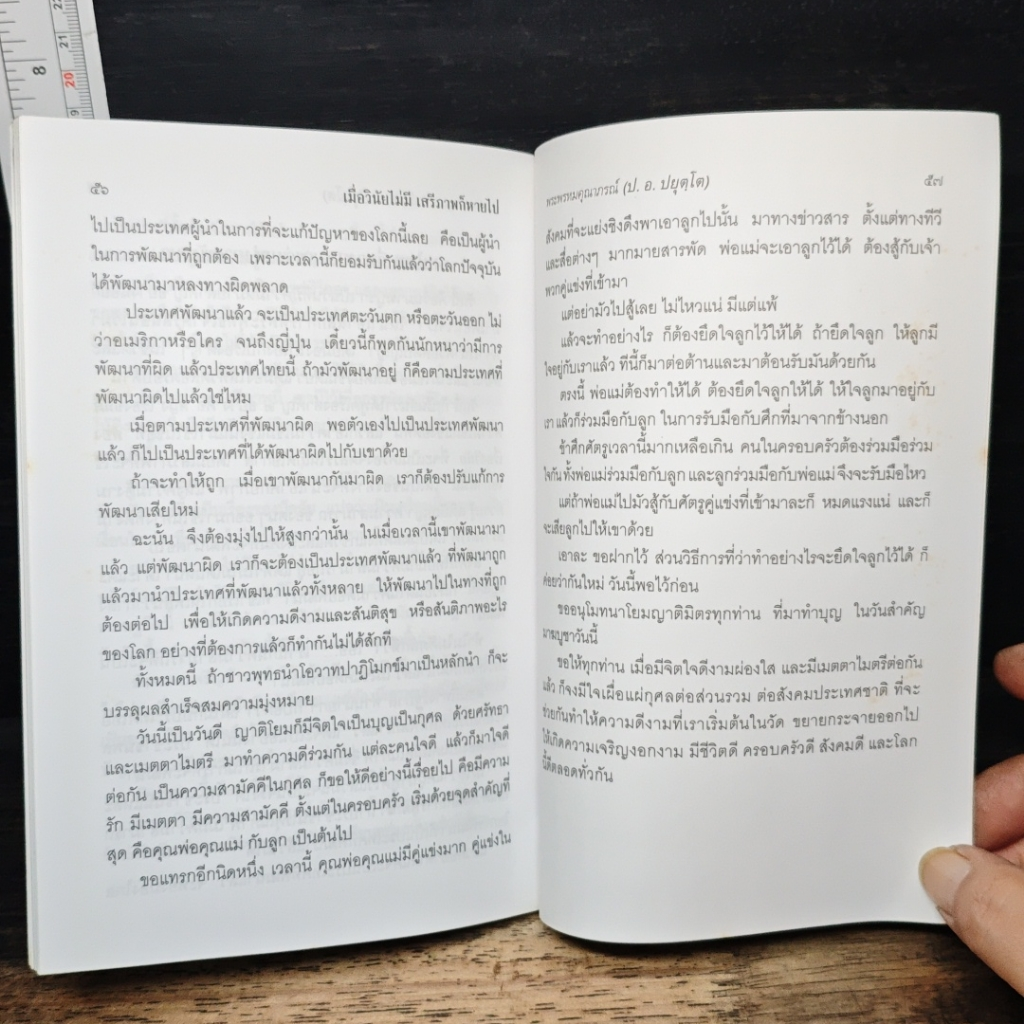 8
22
21
20
19
๕๖
เมื่อวินัยไม่มี เสรีภาพก็หายไป
ไปเป็นประเทศผู้นำในการที่จะแก้ปัญหาของโลกนี้เลย คือเป็นผู้นำ
ในการพัฒนาที่ถูกต้อง เพราะเวลานี้ก็ยอมรับกันแล้วว่าโลกปัจจุบัน
ได้พัฒนามาหลงทางผิดพลาด
ประเทศพัฒนาแล้ว จะเป็นประเทศตะวันตก หรือตะวันออก ไม่
ว่าอเมริกาหรือใคร จนถึงญี่ปุ่น เดี๋ยวนี้ก็พูดกันนักหนาว่ามีการ
พัฒนาที่ผิด แล้วประเทศไทยนี้ ถ้ามัวพัฒนาอยู่ ก็คือตามประเทศที่
พัฒนาผิดไปแล้วใช่ไหม
เมื่อตามประเทศที่พัฒนาผิด พอตัวเองไปเป็นประเทศพัฒนา
แล้ว ก็ไปเป็นประเทศที่ได้พัฒนาผิดไปกับเขาด้วย
ถ้าจะทำให้ถูก เมื่อเขาพัฒนากันมาผิด เราก็ต้องปรับแก้การ
พัฒนาเสียใหม่
ฉะนั้น จึงต้องมุ่งไปให้สูงกว่านั้น ในเมื่อเวลานี้เขาพัฒนามา
แล้ว แต่พัฒนาผิด เราก็จะต้องเป็นประเทศพัฒนาแล้ว ที่พัฒนาถูก
แล้วมานำประเทศที่พัฒนาแล้วทั้งหลาย ให้พัฒนาไปในทางที่ถูก
ต้องต่อไป เพื่อให้เกิดความดีงามและสันติสุข หรือสันติภาพอะไร
ของโลก อย่างที่ต้องการแล้วก็ทำกันไม่ได้สักที
ทั้งหมดนี้ ถ้าชาวพุทธนำโอวาทปาฏิโมกข์มาเป็นหลักนำ ก็จะ
บรรลุผลสำเร็จสมความมุ่งหมาย
วันนี้เป็นวันดี ญาติโยมก็มีจิตใจเป็นบุญเป็นกุศล ด้วยศรัทธา
และเมตตาไมตรี มาทำความดีร่วมกัน แต่ละคนใจดี แล้วก็มาใจดี
ต่อกัน เป็นความสามัคคีในกุศล ก็ขอให้ดีอย่างนี้เรื่อยไป คือมีความ
รัก มีเมตตา มีความสามัคคี ตั้งแต่ในครอบครัว เริ่มด้วยจุดสำคัญที่
สุด คือคุณพ่อคุณแม่ กับลูก เป็นต้นไป
ขอแทรกอีกนิดหนึ่ง เวลานี้ คุณพ่อคุณแม่มีคู่แข่งมาก คู่แข่งใน
พระพรหมคุณาภรณ์ (ป. อ. ปยุตฺโต)
๕๗
สังคมที่จะแย่งชิงดึงพาเอาลูกไปนั้น มาทางข่าวสาร ตั้งแต่ทางทีวี
และสื่อต่างๆ มากมายสารพัด พ่อแม่จะเอาลูกไว้ได้ ต้องสู้กับเจ้า
พวกคู่แข่งที่เข้ามา
แต่อย่ามัวไปสู้เลย ไม่ไหวแน่ มีแต่แพ้
แล้วจะทำอย่างไร ก็ต้องยึดใจลูกไว้ให้ได้ ถ้ายึดใจลูก ให้ลูกมี
ใจอยู่กับเราแล้ว ทีนี้ก็มาต่อต้านและมาต้อนรับมันด้วยกัน
ตรงนี้ พ่อแม่ต้องทำให้ได้ ต้องยึดใจลูกให้ได้ ให้ใจลูกมาอยู่กับ
เรา แล้วก็ร่วมมือกับลูก ในการรับมือกับศึกที่มาจากข้างนอก
ข้าศึกศัตรูเวลานี้มากเหลือเกิน คนในครอบครัวต้องร่วมมือร่วม
ใจกัน ทั้งพ่อแม่ร่วมมือกับลูก และลูกร่วมมือกับพ่อแม่ จึงจะรับมือไหว
แต่ถ้าพ่อแม่ไปมัวสู้กับศัตรูคู่แข่งที่เข้ามาละก็ หมดแรงแน่ และก็
จะเสียลูกไปให้เขาด้วย
เอาละ ขอฝากไว้ ส่วนวิธีการที่ว่าทำอย่างไรจะยึดใจลูกไว้ได้ ก็
ค่อยว่ากันใหม่ วันนี้พอไว้ก่อน
ขออนุโมทนาโยมญาติมิตรทุกท่าน ที่มาทำบุญ ในวันสำคัญ
มาฆบูชาวันนี้
ขอให้ทุกท่าน เมื่อมีจิตใจดีงามผ่องใส และมีเมตตาไมตรีต่อกัน
แล้ว ก็จงมีใจเผื่อแผ่กุศลต่อส่วนรวม ต่อสังคมประเทศชาติ ที่จะ
ช่วยกันทำให้ความดีงามที่เราเริ่มต้นในวัด ขยายกระจายออกไป
ให้เกิดความเจริญงอกงาม มีชีวิตดี ครอบครัวดี สังคมดี และโลก
นี้ดีตลอดทั่วกัน